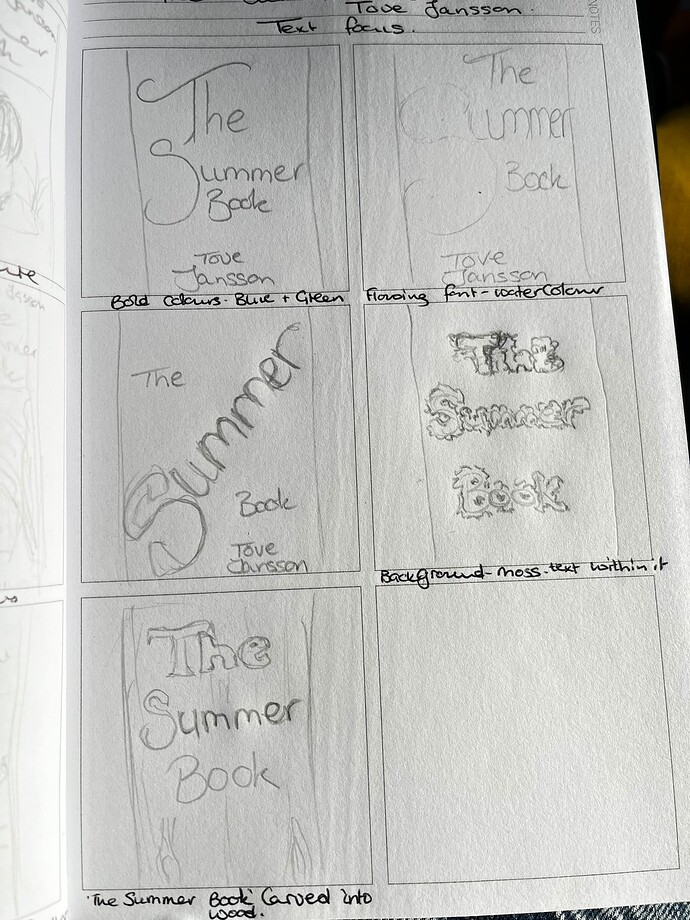 Tove Jansson.
Text focus.
NOTES
The
Summer
Book
Tove
Jansson
Bold colours - Blue + Green
The
Summer
Book
Tove
Jansson
Flowing font - watercolour
The
Summer
Book
Tove
Jansson
The
Summer
Book
Background - moss. text within it
The
Summer
Book
'The Summer Book' Carved into
wood.